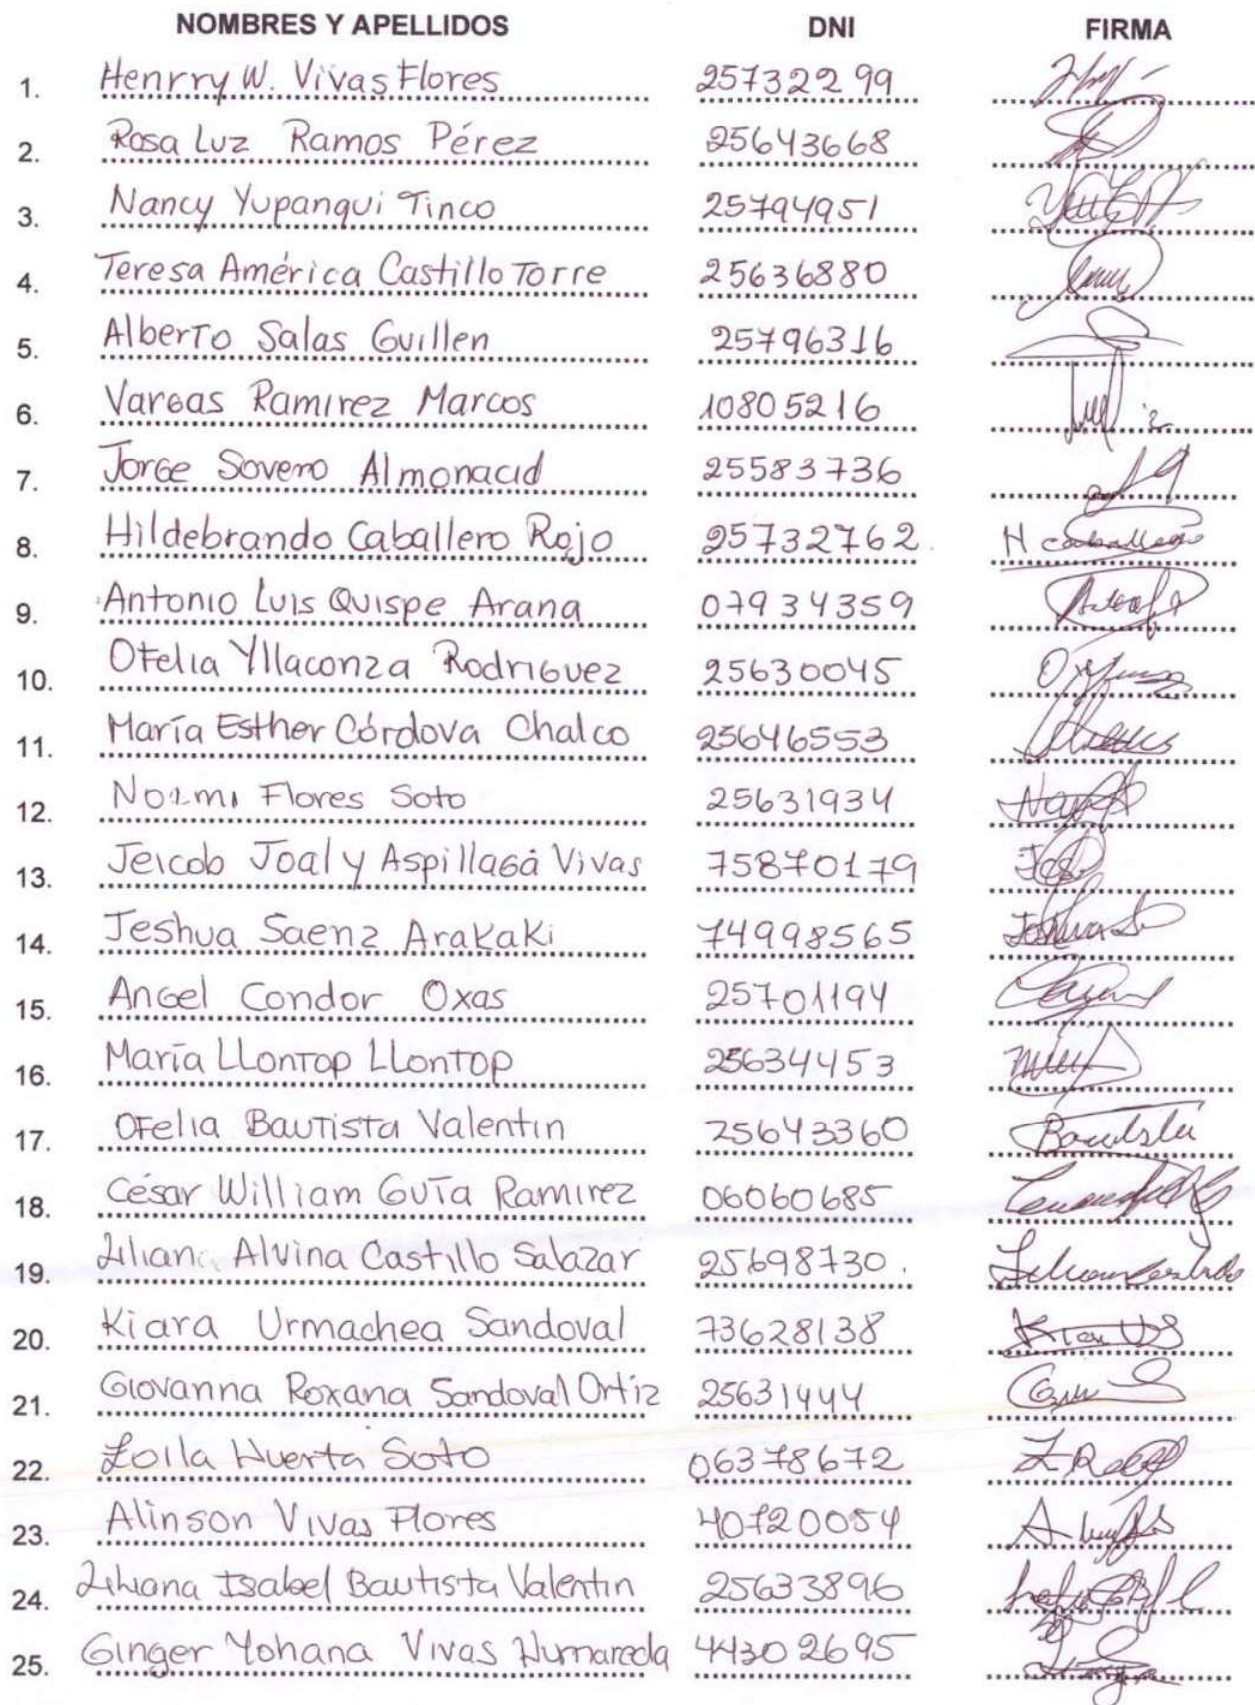 NOMBRES Y APELLIDOS DNI FIRMA
1. Henrry W. Vivas Flores 25732299
2. Rosa Luz Ramos Pérez 25643668
3. Nancy Yupanqui Tinco 25794951
4. Teresa América Castillo Torre 25636880
5. Alberto Salas Guillen 25796316
6. Vargas Ramirez Marcos 10805216
7. Jorge Sovero Almonacid 25583736
8. Hildebrando Caballero Rojo 25732762 H Caballero
9. Antonio Luis Quispe Arana 07934359
10. Ofelia Yllaconza Rodriguez 25630045
11. María Esther Córdova Chalco 25646553
12. Flores Soto 25631934
13. Jeicob Joaly Aspillaga Vivas 75870179
14. Jeshua Saenz Arakaki 74998565
15. Angel Condor Oxas 25701194
16. María Llontop Llontop 25634453
17. Ofelia Bautista Valentin 25643360 Bautista
18. César William Guía Ramirez 06060685
19. Liliana Alvina Castillo Salazar 25698730.
20. Kiara Urmachea Sandoval 73628138
21. Giovanna Roxana Sandoval Ortiz 25631444
22. Zoila Huerta Soto 06378672
23. Alinson Vivas Flores 40720054
24. Liliana Isabel Bautista Valentin 25633896
25. Ginger Yohana Vivas Humareda 44302695